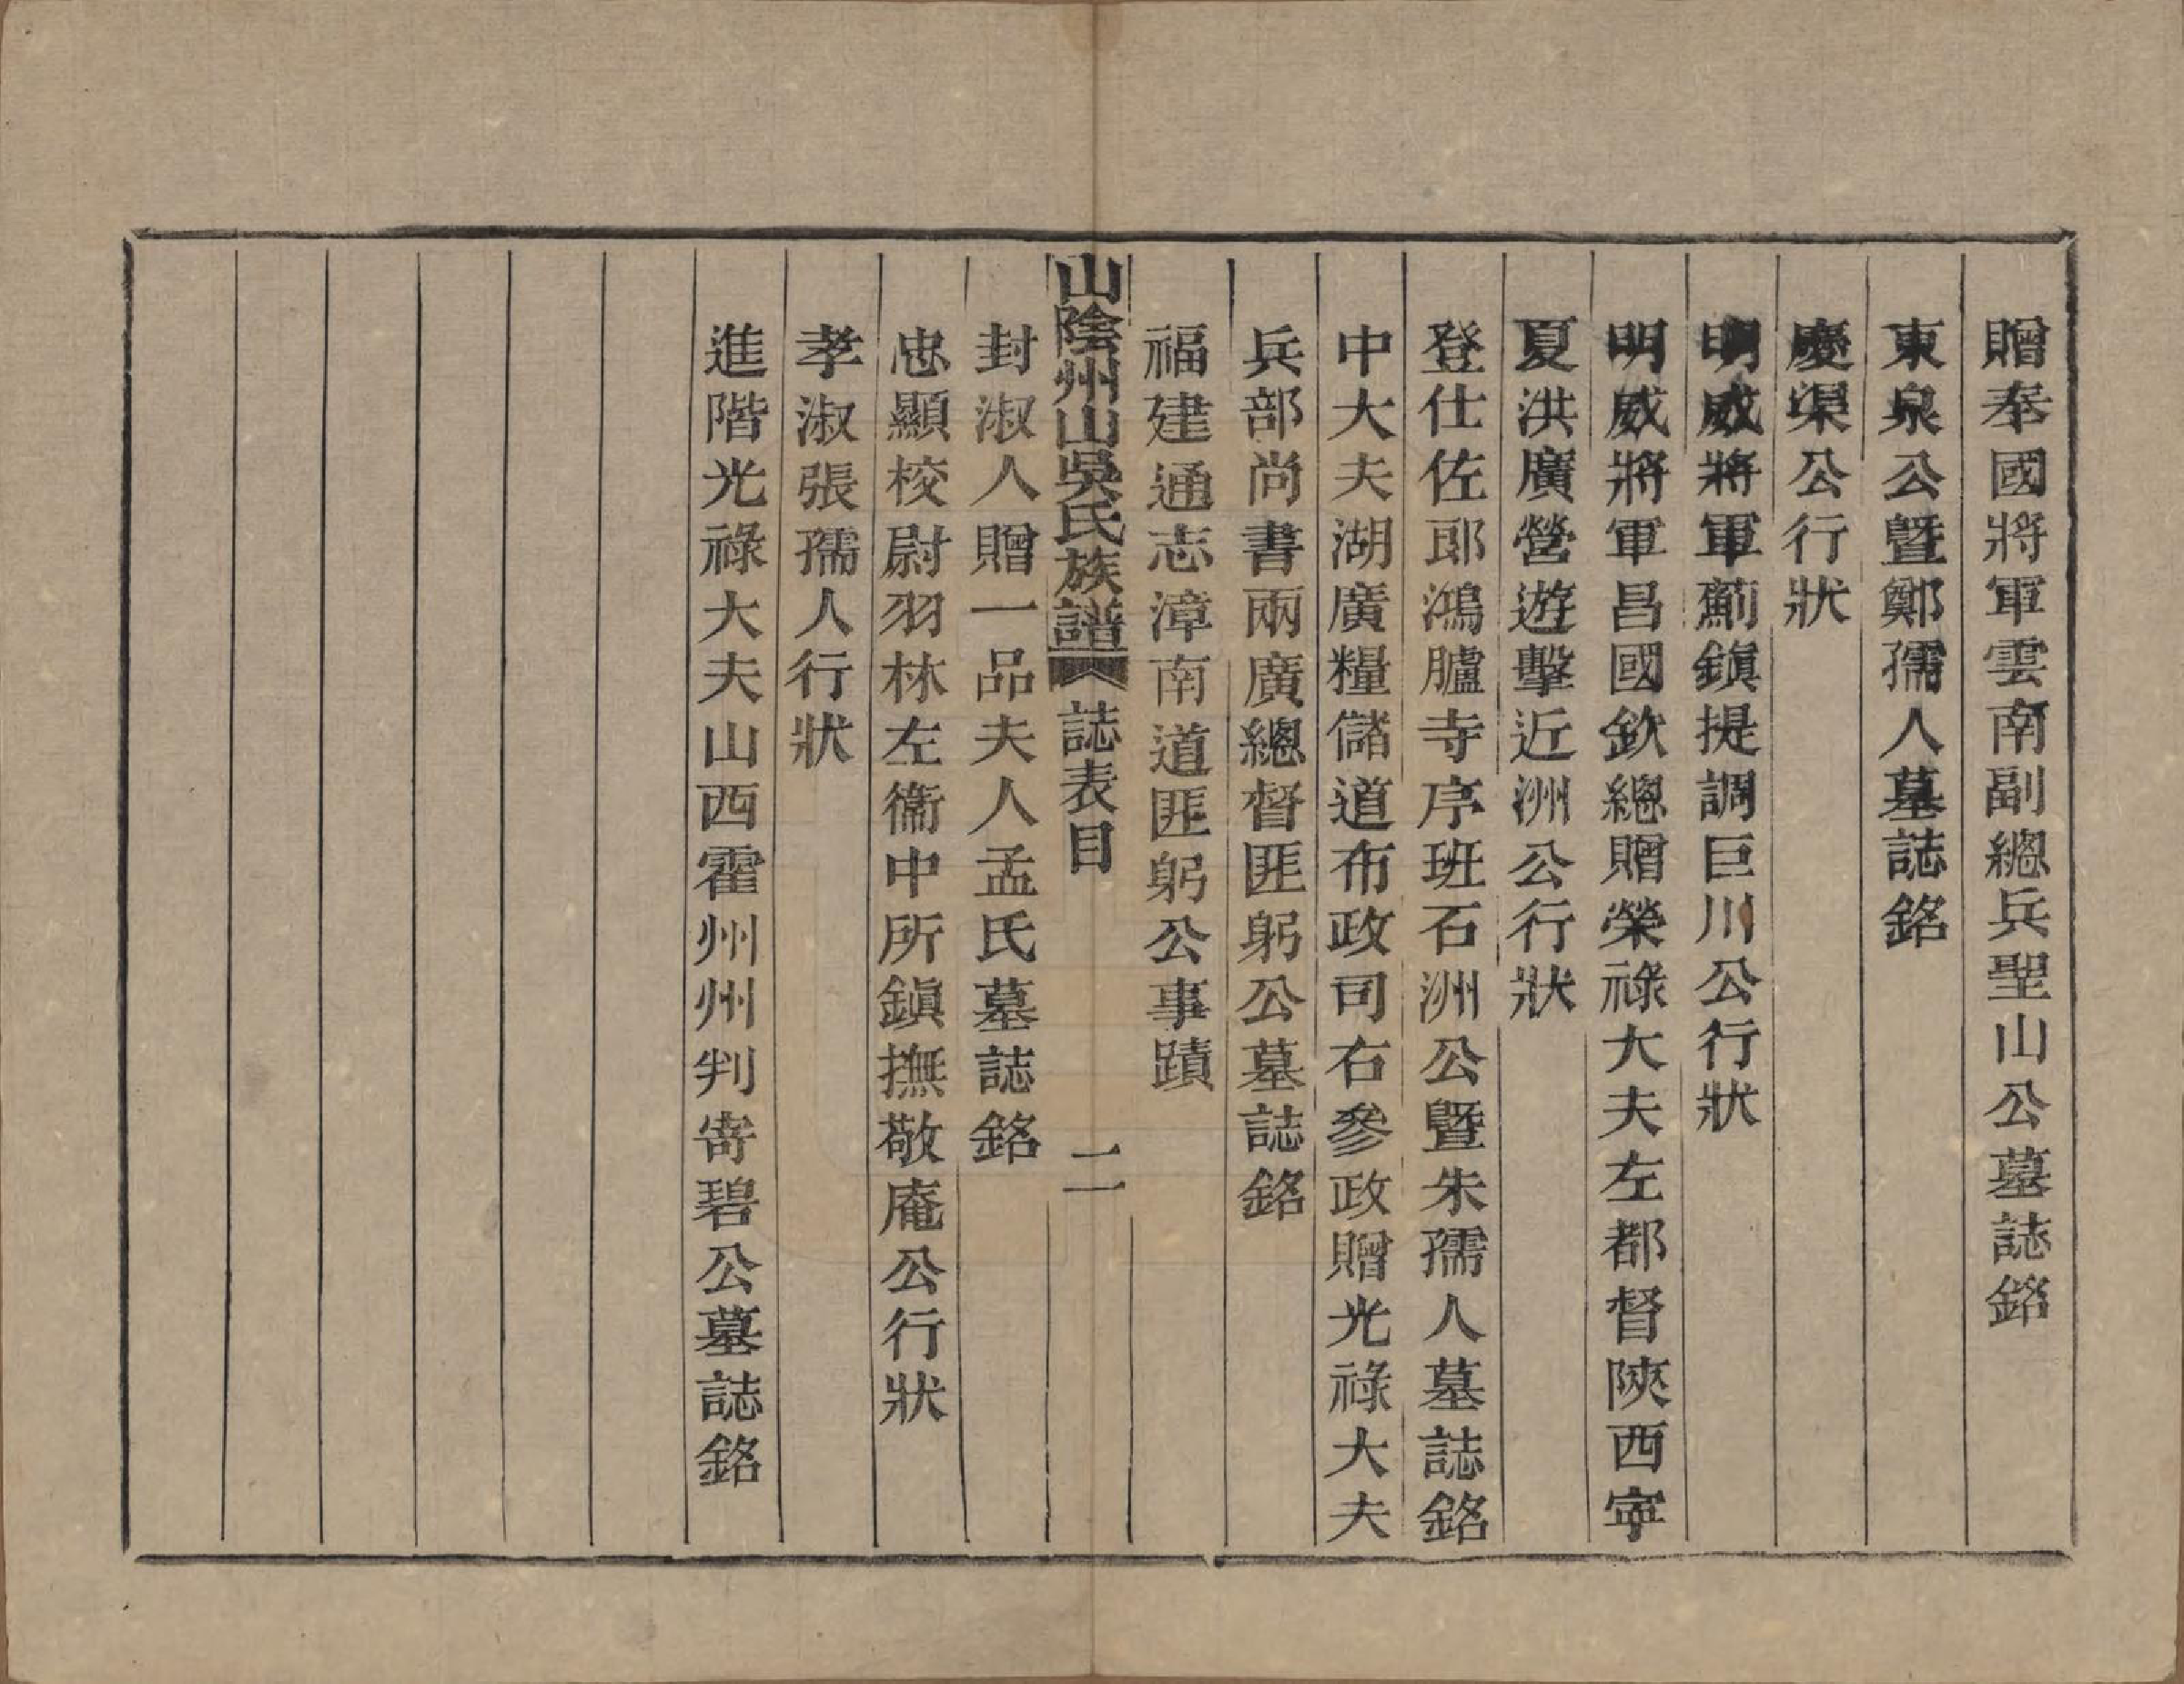 贈奉國將軍雲南副總兵聖山公墓誌銘
東泉公曁鄭孺人墓誌銘
慶渠公行狀
明威將軍薊鎭提調巨川公行狀
明威將軍昌國欽總贈榮祿大夫左都督陝西寧
夏洪廣營遊擊近洲公行狀
登仕佐郎鴻臚寺序班石洲公曁朱孺人墓誌銘
中大夫湖廣糧儲道布政司右參政贈光祿大夫
兵部尚書兩廣總督匪躬公墓誌銘
福建通志漳南道匪躬公事蹟
山陰州山吳氏族譜 誌表目 二
封淑人贈一品夫人孟氏墓誌銘
忠顯校尉羽林左衞中所鎭撫敬庵公行狀
孝淑張孺人行狀
進階光祿大夫山西霍州州判寄碧公墓誌銘